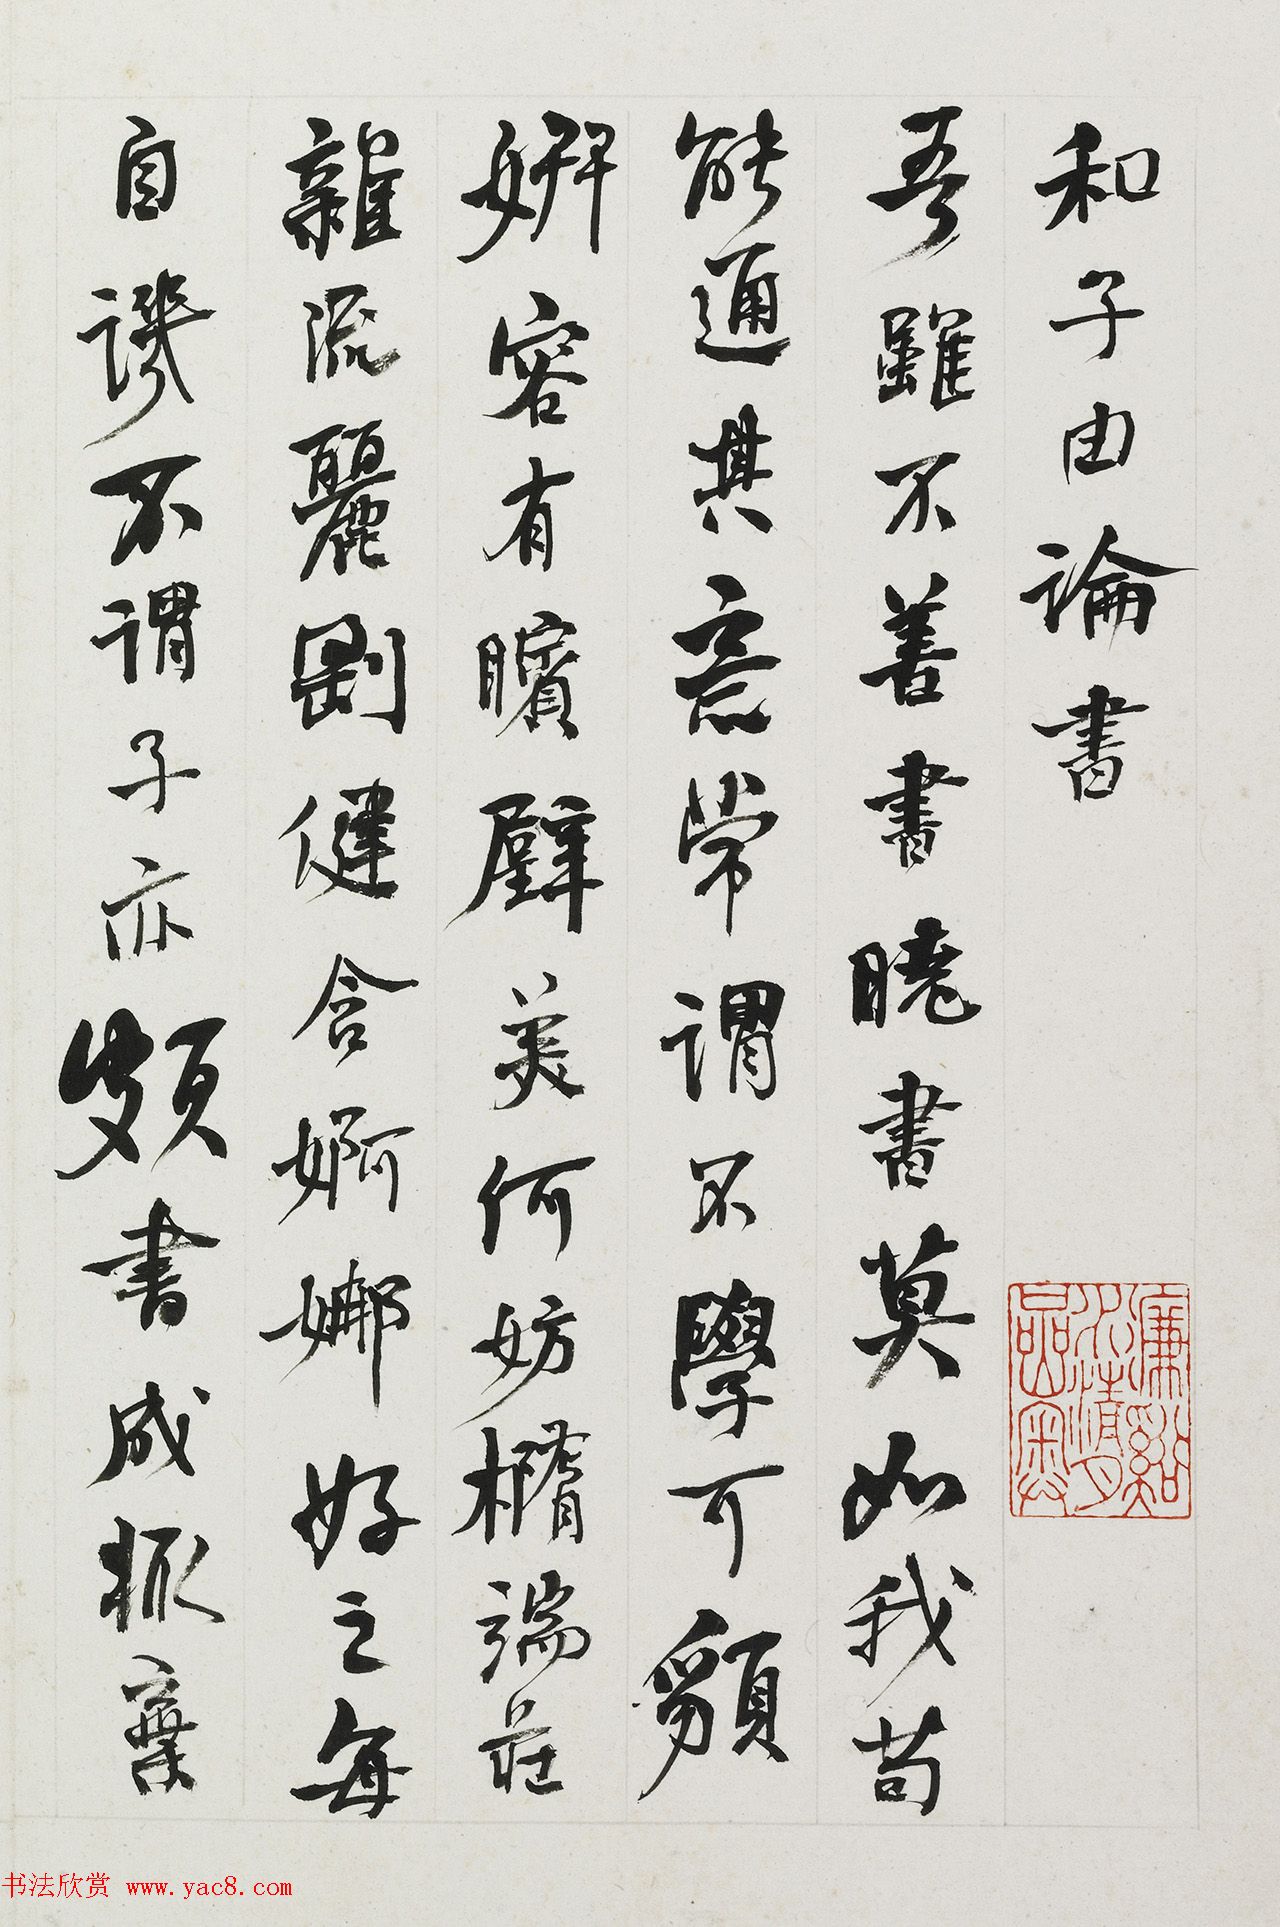 和子由論書
吾雖不善書曉書莫如我苟
能通其意常謂不學可䫉
妍容有矉璧美何妨橢端莊
雜流麗剛健含婀娜好之每
自譏不謂子亦頗書成輒棄
书法欣赏 www.yac8.com